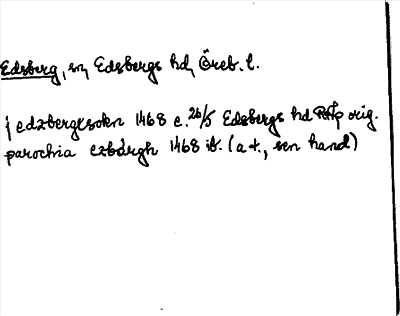 Edsberg, sn, Edsbergs hd, Öreb. l.
j edzbergxsokn 1468 e. 26/5 Edsbergs hd RAp orig.
parochia ezbärgh 1468 ib. (a t., sen hand)